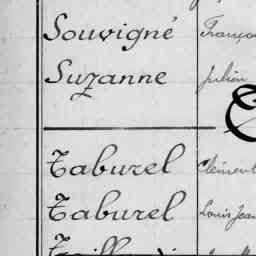 Souvigné Franço
Suzanne Julien
Taburel Clément
Taburel Louis Jean